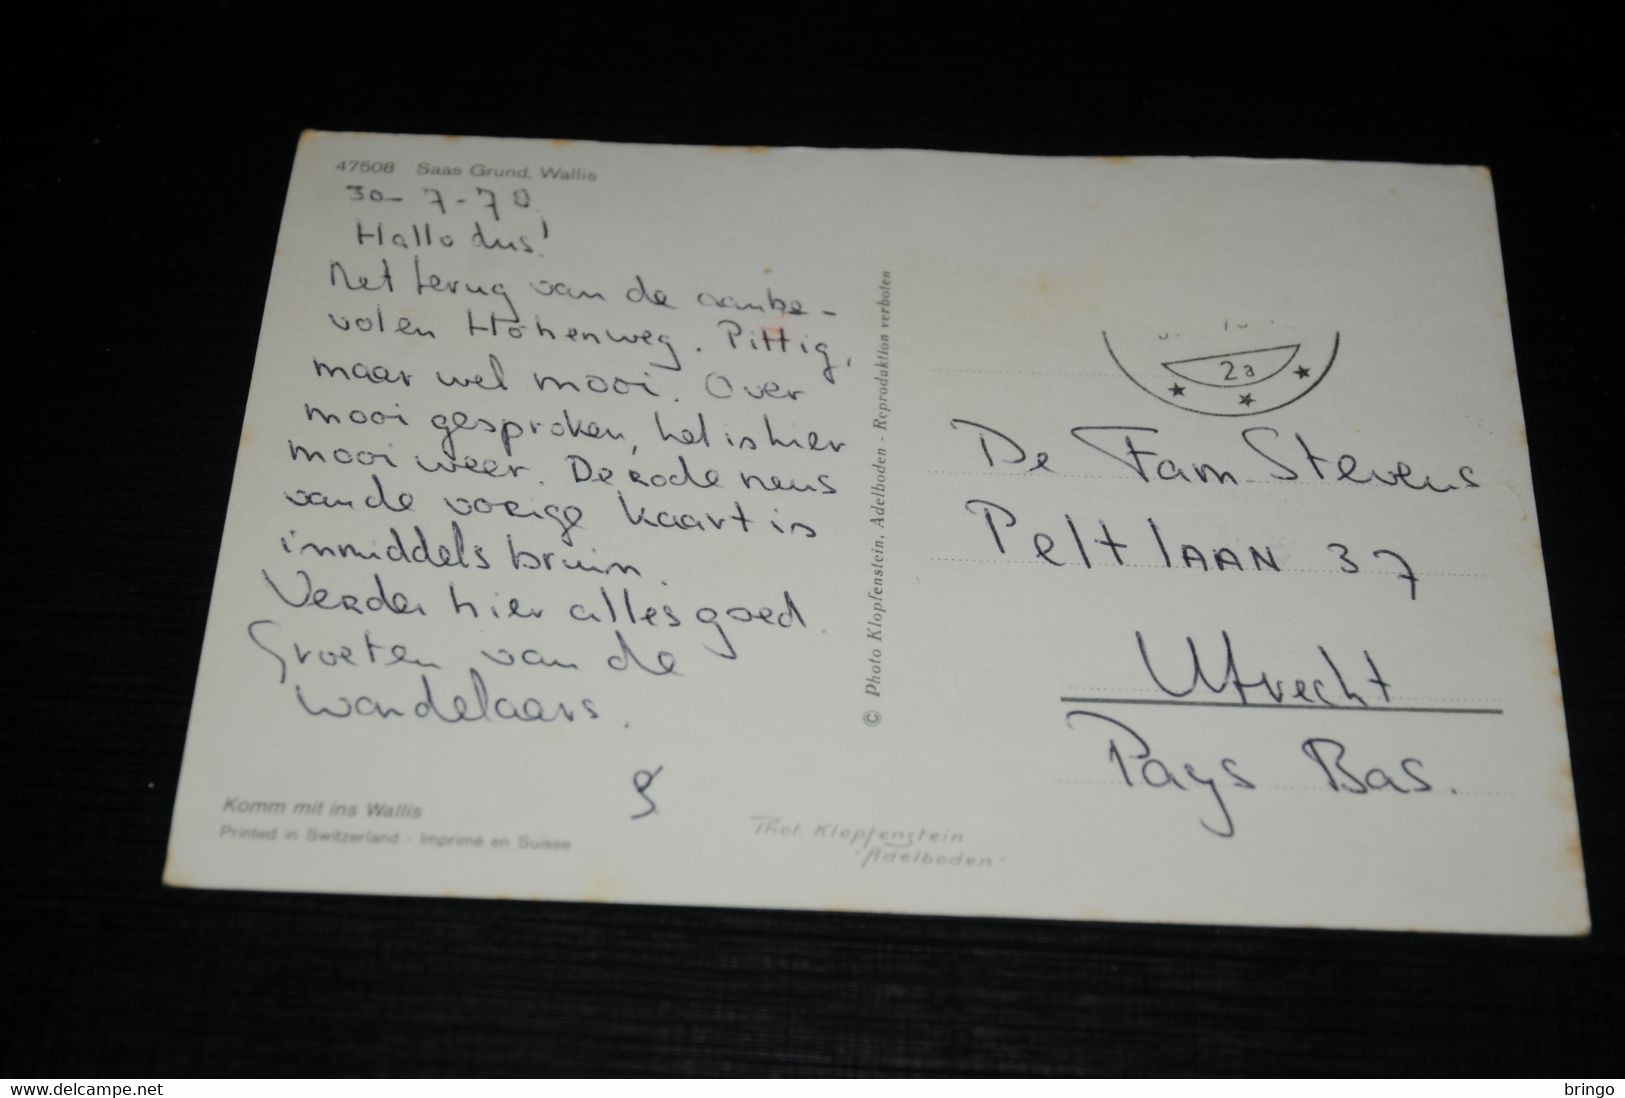 47508 Saas Grund, Wallis
30-7-78
Hallo dus!
Net terug van de aanbe-
volen Höhenweg. Pittig,
maar wel mooi. Over
mooi gesproken, het is hier
mooi weer. De rode neus
van de vorige kaart is
inmiddels bruin.
Verder hier alles goed.
Groeten van de
wandelaars.
Komm mit ins Wallis
Printed in Switzerland - Imprimé en Suisse
Phot. Klopfenstein
Adelboden
© Photo Klopfenstein, Adelboden - Reproduktion verboten
2a
De Fam. Stevens
Peltlaan 37
Utrecht
Pays Bas.
www.delcampe.net
bringo